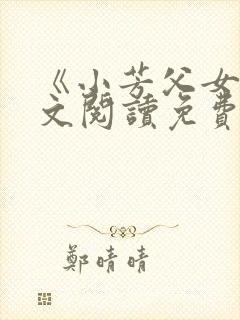 《小芳父女
文閱讀免費
鄭晴晴